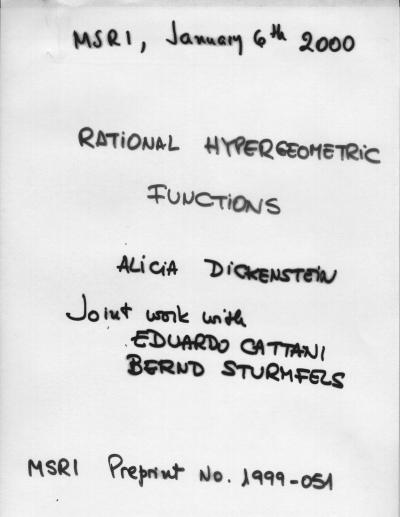 MSRI, January 6th 2000
RATIONAL HYPERGEOMETRIC
FUNCTIONS
ALICIA DICKENSTEIN
Joint work with
EDUARDO CATTANI
BERND STURMFELS
MSRI Preprint No. 1999-051